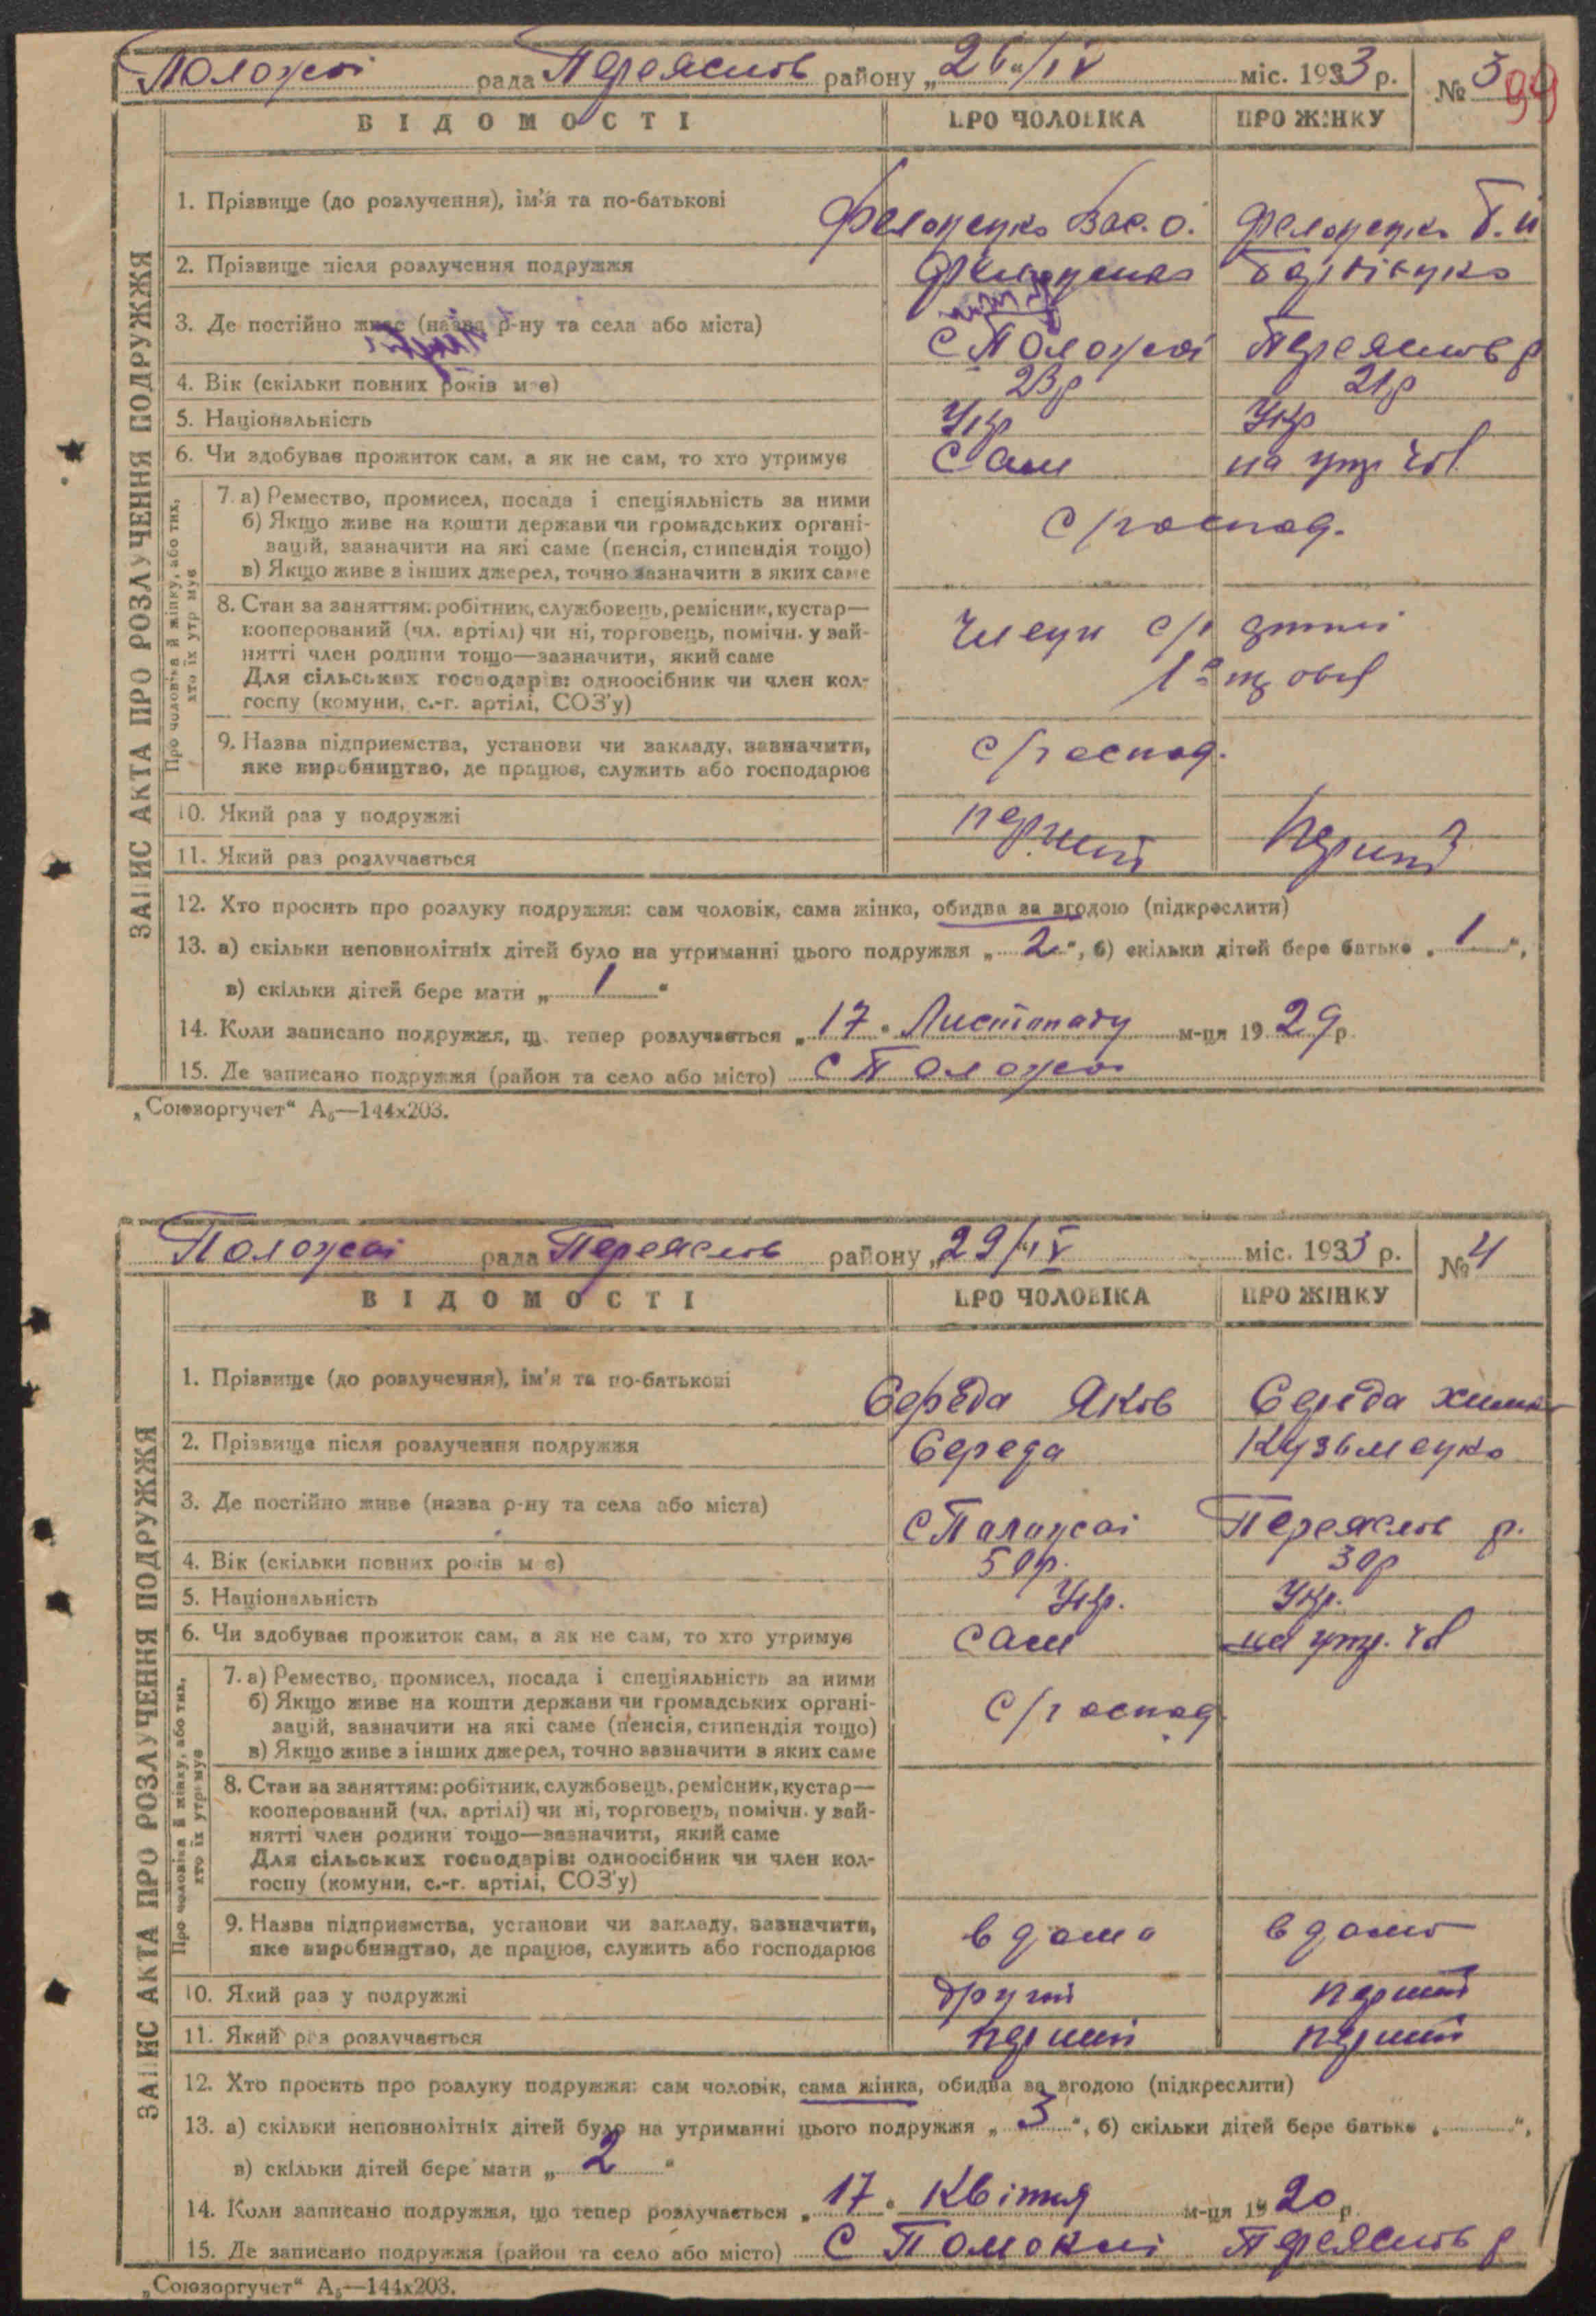 Положаї рада Переяслов району „26“/IV міс. 1933 р. № 3
99
ВІДОМОСТІ ПРО ЧОЛОВІКА ПРО ЖІНКУ
ЗАПИС АКТА ПРО РОЗЛУЧЕННЯ ПОДРУЖЖЯ
1. Прізвище (до розлучення), ім'я та по-батькові Вас. О.
2. Прізвище після розлучення подружжя
3. Де постійно живе (назва р-ну та села або міста) с Положаї Переяслов р
4. Вік (скільки повних років має) 23р 21р
5. Національність Укр Укр
6. Чи здобував прожиток сам, а як не сам, то хто утримує Сам на утр. чол
Про чоловіка й жінку, або тих, хто їх утримує
7. а) Ремество, промисел, посада і спеціяльність за ними
б) Якщо живе на кошти держави чи громадських органі-
зацій, зазначити на які саме (пенсія, стипендія тощо)
в) Якщо живе з інших джерел, точно зазначити з яких саме
с/господ.
8. Стан за заняттям: робітник, службовець, ремісник, кустар—
кооперований (чл. артілі) чи ні, торговець, помічн. у зай-
нятті член родини тощо—зазначити, який саме
Для сільських господарів: одноосібник чи член кол-
госпу (комуни, с.-г. артілі, СОЗ'у)
член с/г артілі
9. Назва підприємства, установи чи закладу, зазначити,
яке виробництво, де працює, служить або господарює
с/господ.
10. Який раз у подружжі
11. Який раз розлучається
перший перший
12. Хто просить про розлуку подружжя: сам чоловік, сама жінка, обидва за згодою (підкреслити)
13. а) скільки неповнолітніх дітей було на утриманні цього подружжя „2“, б) скільки дітей бере батько „1“,
в) скільки дітей бере мати „1“
14. Коли записано подружжя, що тепер розлучається „17“ Листопаду м-ця 1929 р.
15. Де записано подружжя (район та село або місто) с Положаї
„Союзоргучет“ А₅—144х203.
Положаї рада Переяслов району „29“/IV міс. 1933 р. № 4
ВІДОМОСТІ ПРО ЧОЛОВІКА ПРО ЖІНКУ
ЗАПИС АКТА ПРО РОЗЛУЧЕННЯ ПОДРУЖЖЯ
1. Прізвище (до розлучення), ім'я та по-батькові Середа Яков Середа
2. Прізвище після розлучення подружжя Середа Кузьменко
3. Де постійно живе (назва р-ну та села або міста) с Положаї Переяслов р.
4. Вік (скільки повних років має) 50р. 30р
5. Національність Укр. Укр.
6. Чи здобував прожиток сам, а як не сам, то хто утримує сам на утр. чол
Про чоловіка й жінку, або тих, хто їх утримує
7. а) Ремество, промисел, посада і спеціяльність за ними
б) Якщо живе на кошти держави чи громадських органі-
зацій, зазначити на які саме (пенсія, стипендія тощо)
в) Якщо живе з інших джерел, точно зазначити з яких саме
с/господ
8. Стан за заняттям: робітник, службовець, ремісник, кустар—
кооперований (чл. артілі) чи ні, торговець, помічн. у зай-
нятті член родини тощо—зазначити, який саме
Для сільських господарів: одноосібник чи член кол-
госпу (комуни, с.-г. артілі, СОЗ'у)
9. Назва підприємства, установи чи закладу, зазначити,
яке виробництво, де працює, служить або господарює
в дома в дома
10. Який раз у подружжі другий перший
11. Який раз розлучається перший перший
12. Хто просить про розлуку подружжя: сам чоловік, сама жінка, обидва за згодою (підкреслити)
13. а) скільки неповнолітніх дітей було на утриманні цього подружжя „3“, б) скільки дітей бере батько „ “,
в) скільки дітей бере мати „2“
14. Коли записано подружжя, що тепер розлучається „17“ Квітня м-ця 1920 р.
15. Де записано подружжя (район та село або місто) с Положаї Переяслов р
„Союзоргучет“ А₅—144х203.